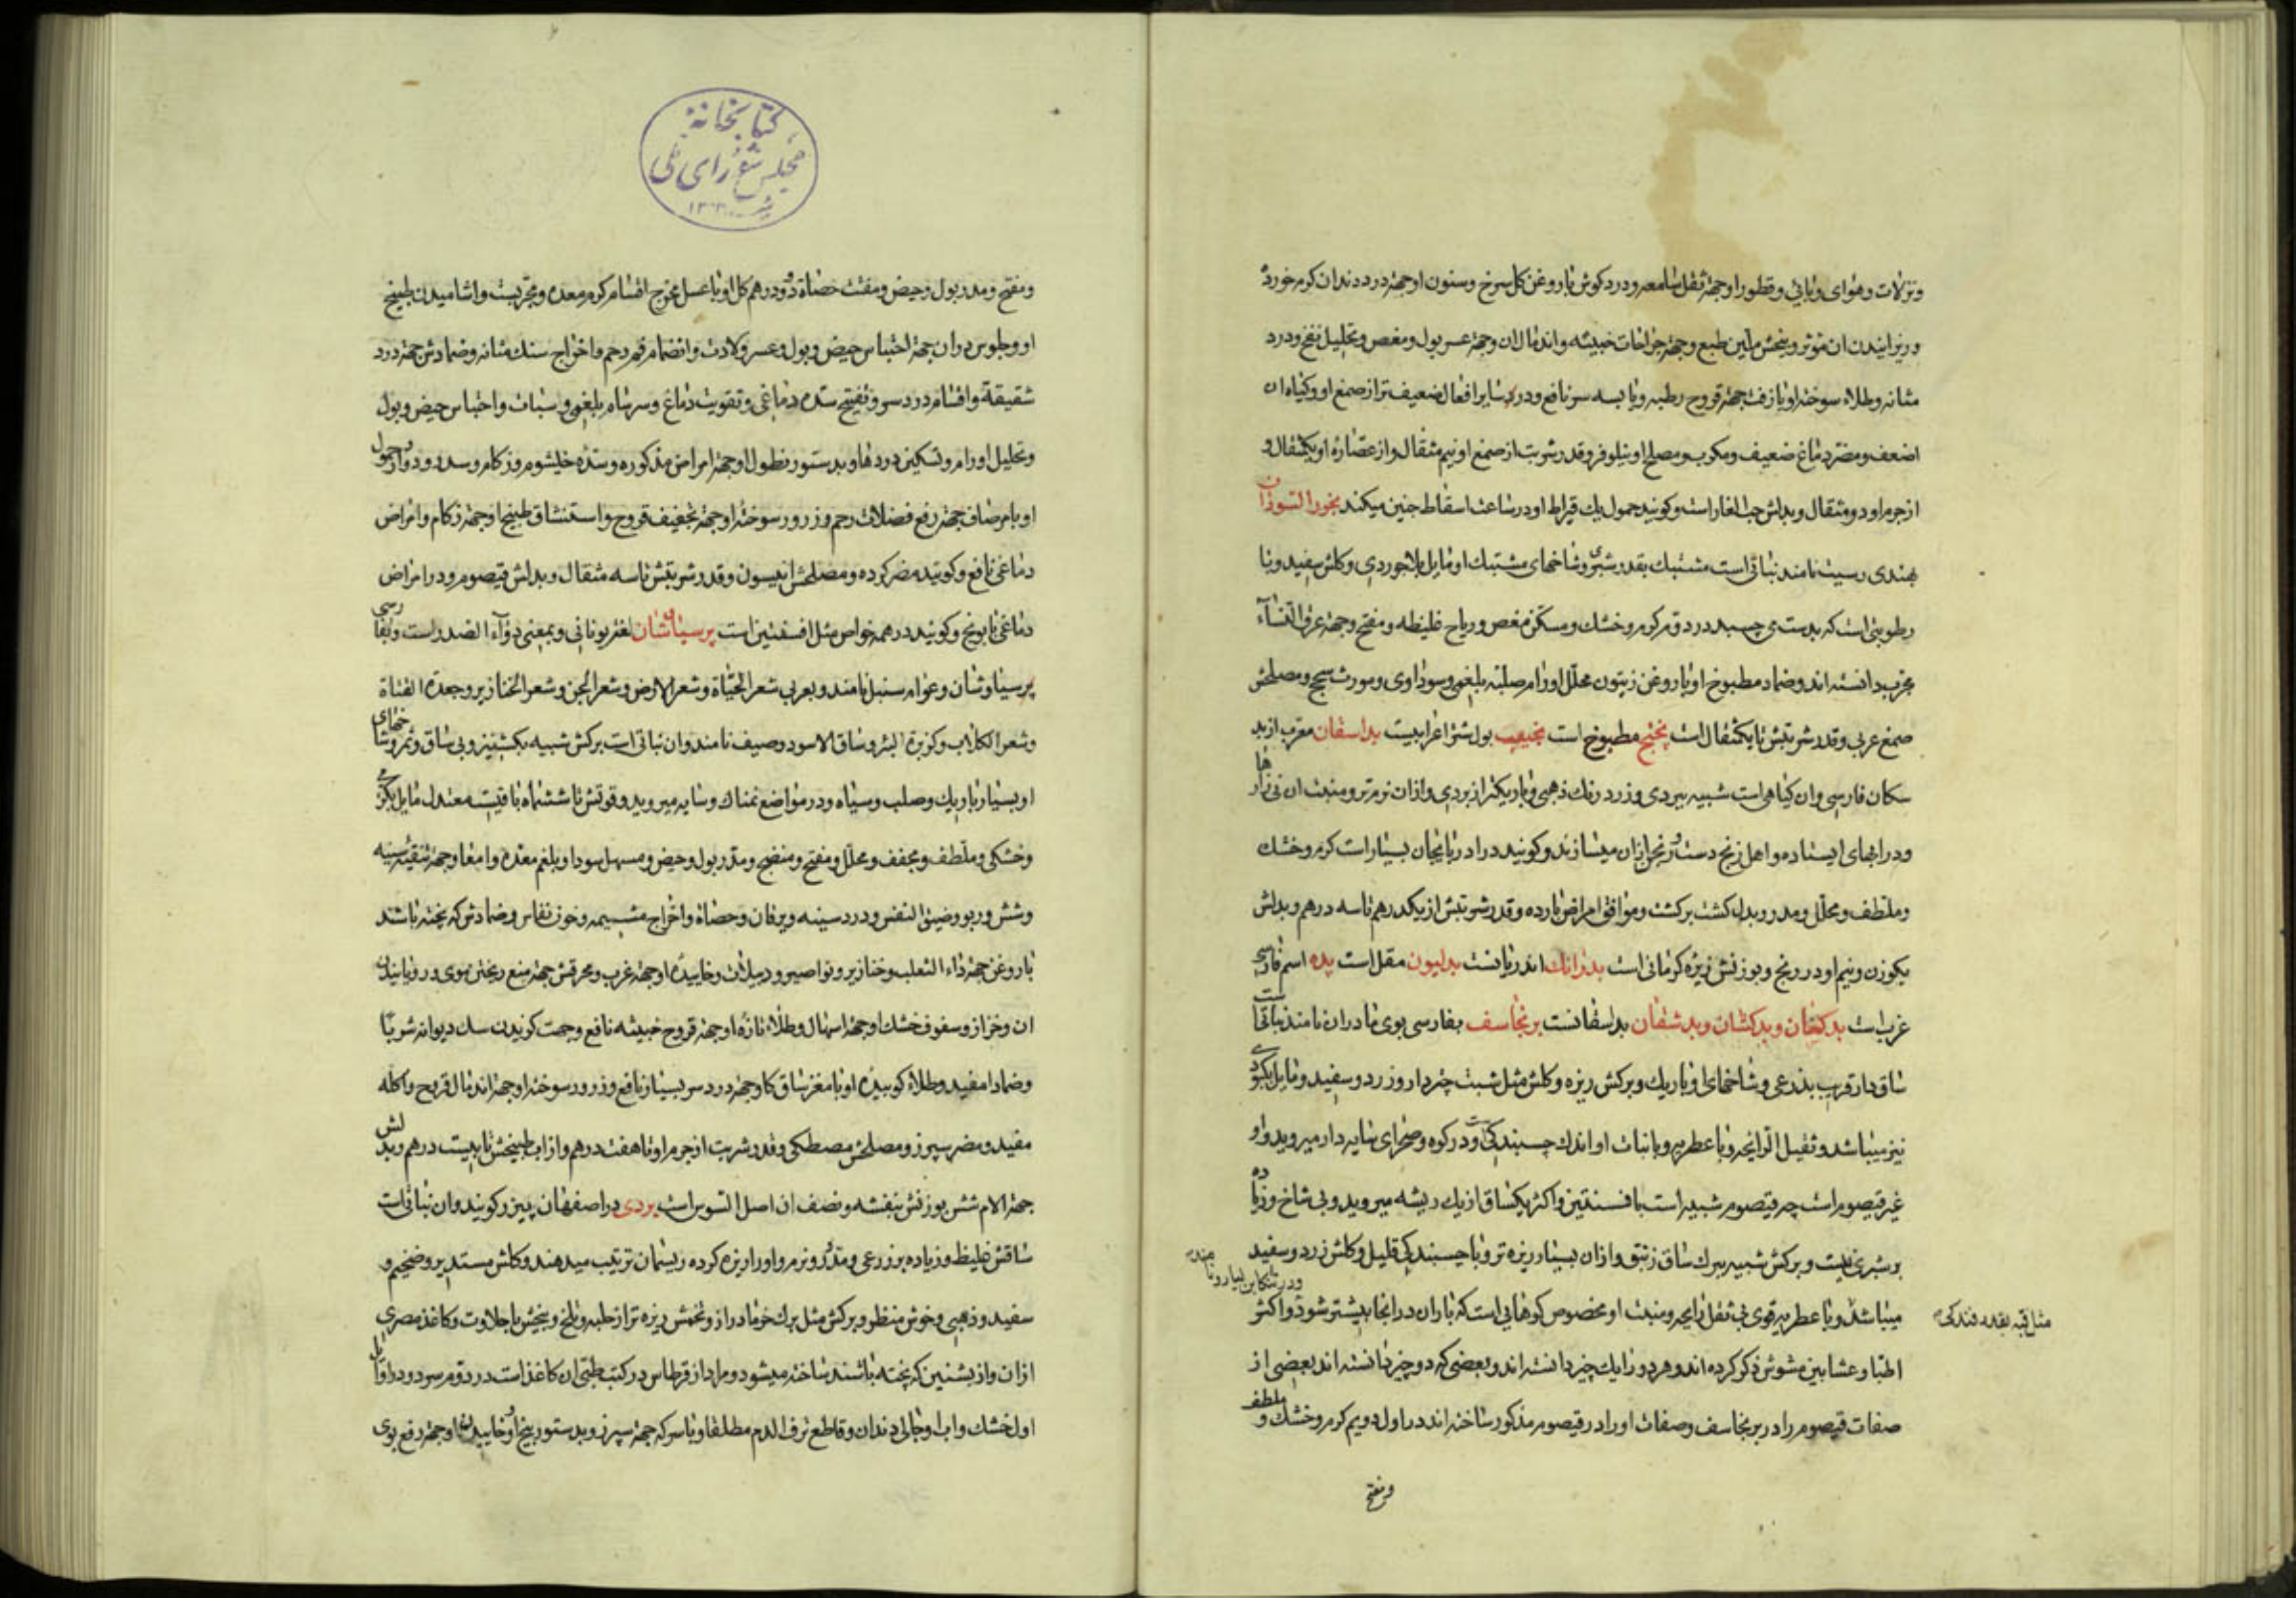 ونزلات وهوای وبائی وقطور او جهة ثقل سامعه ودرد کوش با روغن کل سرخ وسنون او جهة درد دندان کرم خورده
وریزانیدن ان موثر وبخش ملین طبع وجهة جراحات خبیثه واندمال ان وجهة عسر بول ومغص وتحلیل نفخ ودرد
مثانه وطلاء سوخته او با زفت جهة قروح رطبه ویابسه سر نافع ودر سایر افعال ضعیف تر از صمغ او وکیاه ان
اضعف ومضر دماغ ضعیف ومکرب ومصلح او نیلوفر وقدر شربت از صمغ او نیم مثقال واز عصاره او یکمثقال و
از جرم او دو مثقال وبدلش حب الغار است وکویند حمول یک قیراط او در ساعت اسقاط جنین میکند بخور السودان
بهندی رسیت نامند نباتی است مشتبک بقدر شبری وشاخهای مشتبک او مایل بلاجوردی وکلش سفید وبا
رطوبتی است که بدست می چسبد در دوم کرم وخشک ومسکن مغص وریاح غلیظه ومفتح وجهة عرق النساء
مجرب دانسته اند وضماد مطبوخ او با روغن زیتون محلل اورام صلبه بلغمی وسوداوی ومورث سحج ومصلحش
صمغ عربی وقدر شربتش تا یکمثقال است پختج مطبوخ است بول شتر اعرابیست بداسقان معرب از بد
سکان فارسی وان کیاهی است شبیه ببردی وزرد رنک ذهبی وباریکتر از بردی وازان نرم تر ومنبت ان نی زارها
ودر ابهای ایستاده واهل زنج دست رنجن ازان میسازند وکویند در ادربایجان بسیار است کرم وخشک
وملطف ومحلل ومدر وبدل کشت برکشت وموافق امراض بارده وقدر شربتش از یکدرهم تا سه درهم وبدلش
بکوزن ونیم او درونج وبوزنش زیره کرمانی است بدرانک اندریانست بدلیون مقل است پده اسم فارسی
غرب است بدکتان وبدشفان بداسفانست برنجاسف بفارسی بوی مادران نامند نباتیست
ساق دار قریب بذرعی وشاخهای او باریک وبرکش ریزه وکلش مثل شبت چتردار وزرد وسفید ومایل بکبودی
نیز میباشد وثقیل الرایحه وبا عطریه وبا نبات او اندک چسبندکی است ودر کوه وصحرای سایه دار میروید واو
غیر قیصوم است چه قیصوم شبیه است بافسنتین واکثر یکساق از یک ریشه میروید وبی شاخ وزیاده
برشبری نیست وبرکش شبیه ببرک ساق زنبق وازان بسیار ریزه تر وبا چسبندکی قلیل وکلش زرد وسفید
میباشد وبا عطریه قوی بی ثقل رایحه ومنبت او مخصوص کوههایی است که باران در انجا بیشتر شود واکثر
اطبا وعشابین مشوش ذکر کرده اند وهر دو را یک چیز دانسته اند وبعضی که دو چیز دانسته اند بعضی از
صفات قیصوم را در برنجاسف وصفات او را در قیصوم مذکور ساخته اند در اول دویم کرم وخشک وملطف
ومفتح
کتابخانه
مجلس شورای ملی
ومفتح ومدر بول وحیض ومفتت حصاة ودو درهم کل او با عسل مخرج اقسام کرم معده ومجربست واشامیدن طبیخ
او وجلوس دران جهة احتباس حیض وبول وعسر ولادت وانضمام فم رحم واخراج سنک مثانه وضمادش جهة درد
شقیقة واقسام درد سر وتفتیح سده دماغی وتقویت دماغ وسرسام بلغمی وسبات واحتباس حیض وبول
وتحلیل اورام وتسکین دردها وبدستور نطول او جهة امراض مذکوره وسده خیشوم وزکام وسدر ودوار وحمول
او با مرصاف جهة رفع فضلات رحم وذرور سوخته او جهة تجفیف قروح واستنشاق طبیخ او جهة زکام وامراض
دماغی نافع وکویند مضر کرده ومصلحش انیسون وقدر شربتش تا سه مثقال وبدلش قیصوم ودر امراض
دماغی بابونج وکویند در همه خواص مثل افسنتین است پرسیاوشان لغة یونانی وبمعنی دواء الصدر است وبفارسی
پرسیاوشان وعوام سنبل نامند وبعربی شعر الحیاة وشعر الارض وشعر الجن وشعر الخنازیر وجعدة القناة
وشعر الکلاب وکزبرة البئر وساق الاسود ووصیف نامند وان نباتی است برکش شبیه بکشنیز وبی ساق وثمر وشاخهای
او بسیار باریک وصلب وسیاه ودر مواضع نمناک وسایه میروید وقوتش تا ششماه باقیست معتدل مایل بکرمی
وخشکی وملطف ومجفف ومحلل ومفتح ومنضج ومدر بول وحیض ومسهل سودا وبلغم معده وامعا وجهة تنقیه سینه
وشش وربو وضیق النفس ودرد سینه ویرقان وحصاة واخراج مشیمه وخون نفاس وضمادش که پخته باشد
با روغن جهة داء الثعلب وخنازیر ونواصیر ودبیلات وخاییده او جهة غرب ومحرقش جهة منع ریختن موی ورویانیدن
ان وخزاز وسفوف خشک او جهة اسهال وطلاء تازه او جهة قروح خبیثه نافع وجهت کزیدن سک دیوانه شربا
وضمادا مفید وطلاء کوبیده او با مغز ساق کاو جهة درد سر بسیار نافع وذرور سوخته او جهة اندمال قروح واکله
مفید ومضر سپرز ومصلحش مصطکی وقدر شربت از جرم او تا هفت درهم واز اب طبیخش تا بیست درهم وبدلش
جهة الام شش بوزنش بنفشه ونصف ان اصل السوس است بردی در اصفهان پیزر کویند وان نباتی است
ساقش غلیظ وزیاده بر ذرعی ومدور ونرم واو را ریزه کرده ریسمان ترتیب میدهند وکلش مستدیر وضخیم و
سفید وذهبی وخوش منظر وبرکش مثل برک خرما دراز وتخمش ریزه تر از حلبه وتلخ وبیخش با حلاوت وکاغذ مصری
ازان واز بشنین که پخته باشند ساخته میشود ومراد از قرطاس در کتب طبی ان کاغذ است در دوم سرد ودر اوایل
اول خشک واب او جالی دندان وقاطع نزف الدم مطلقا وبا سرکه جهة سپرز وبدستور بیخ او وخاییدن او جهة رفع بوی